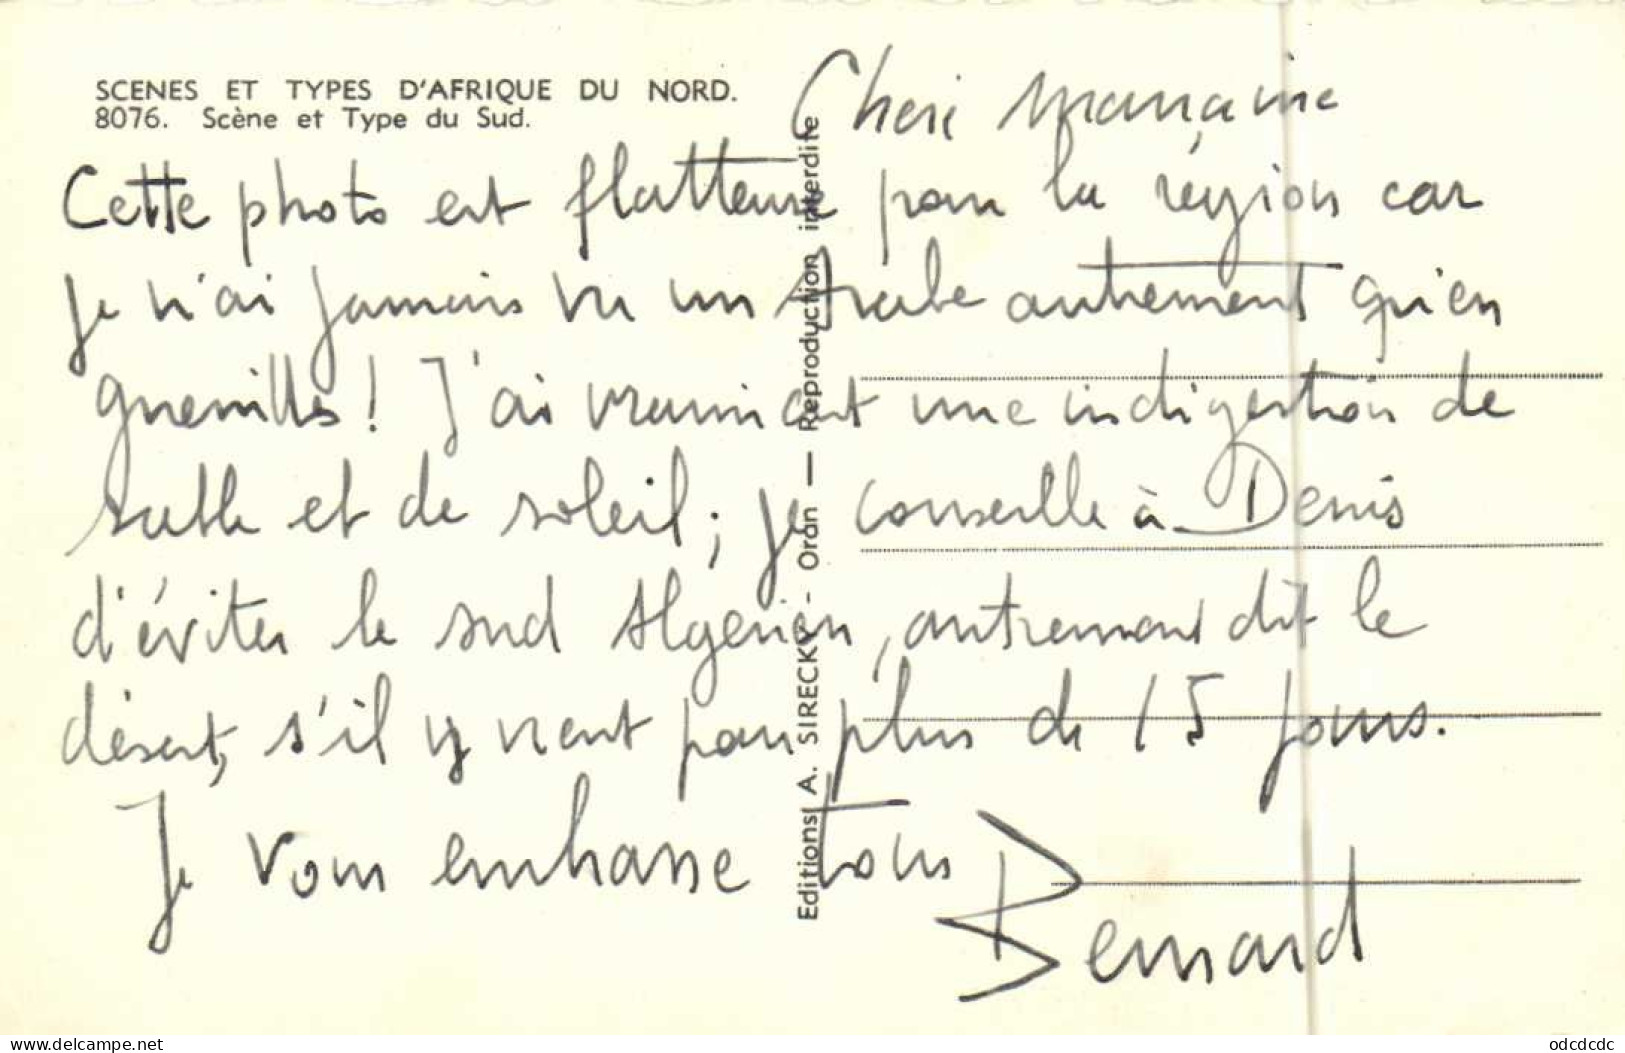 SCENES ET TYPES D'AFRIQUE DU NORD.
8076. Scène et Type du Sud.
Chère
Cette photo est flatteuse pour la région car
je n'ai jamais vu un Arabe autrement qu'en
guenilles ! J'ai vraiment une indigestion de
sable et de soleil ; je conseille à Denis
d'éviter le sud Algérien, autrement dit le
désert, s'il y vient pour plus de 15 jours.
Je vous embrasse tous
Bernard
Editions A. SIRECKY - Oran — Reproduction interdite
www.delcampe.net
odcdcdc